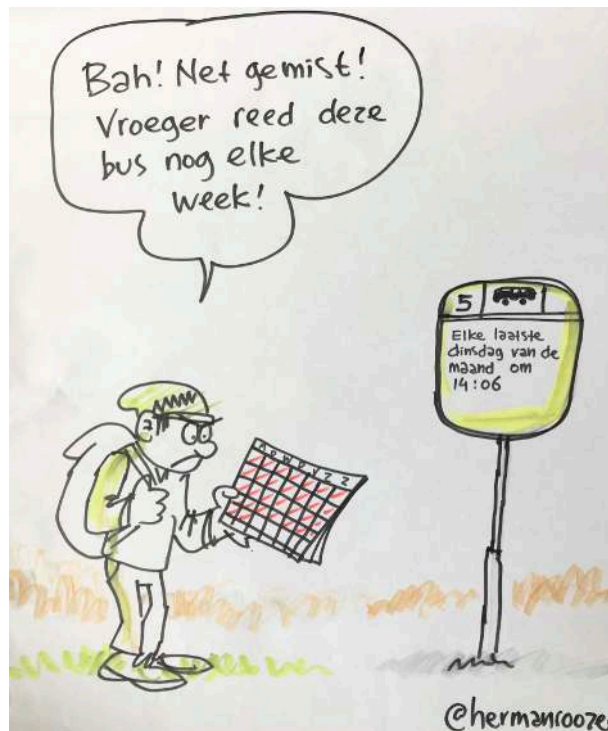 Bah! Net gemist!
Vroeger reed deze
bus nog elke
week!
5
Elke laatste
dinsdag van de
maand om
14:06
M D W D V Z Z